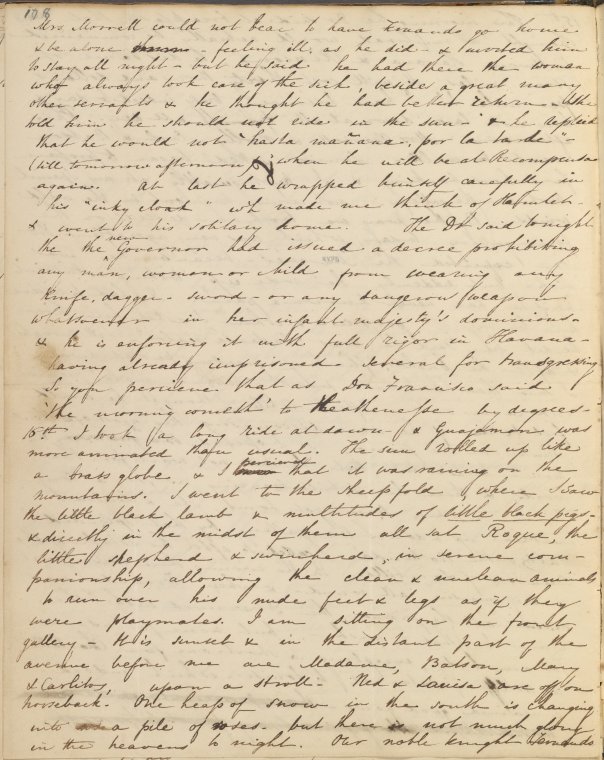 108
Mrs Morrell could not bear to have Fernando go home
& be alone - feeling ill, as he did - & invited him
to stay all night - but he said he had there the woman
who always took care of the sick, besides a great many
other servants & he thought he had better return. She
told him he should not ride in the sun - & he replied
that he would not "hasta mañana, por la tarde" -
(till tomorrow afternoon) when he will be at Recompensa
again. At last he wrapped himself carefully in
his "inky cloak" wh made me think of Hamlet -
& went to his solitary home. The Dr said tonight
the the new Governor had issued a decree prohibiting
any man, woman or child from wearing any
knife, dagger - sword - or any dangerous weapon
whatsoever in her infant majesty's dominions -
& he is enforcing it with full rigor in Havana -
having already imprisoned several for transgressing
So you perceive that as Don Francisco said
'the morning cometh' to Heathenesse by degrees -
15th I took a long ride at dawn & Guajamon was
more animated than usual. The sun rolled up like
a brass globe, & I perceived that it was raining on the
mountains. I went to the sheepfold where I saw
the little black lamb & multitudes of little black pigs -
& directly in the midst of them all sat Roque, the
little shepherd & swineherd, in serene com-
panionship, allowing the clean & unclean animals
to run over his nude feet & legs as if they
were playmates. I am sitting on the front
gallery - It is sunset & in the distant part of the
avenue before me are Madame, Batson, Mary
& Carlitos, upon a stroll - Ned & Louisa are off on
horseback. One heap of snow in the south is changing
into a pile of roses - but there is not much glory
in the heavens to night. Our noble knight Fernando